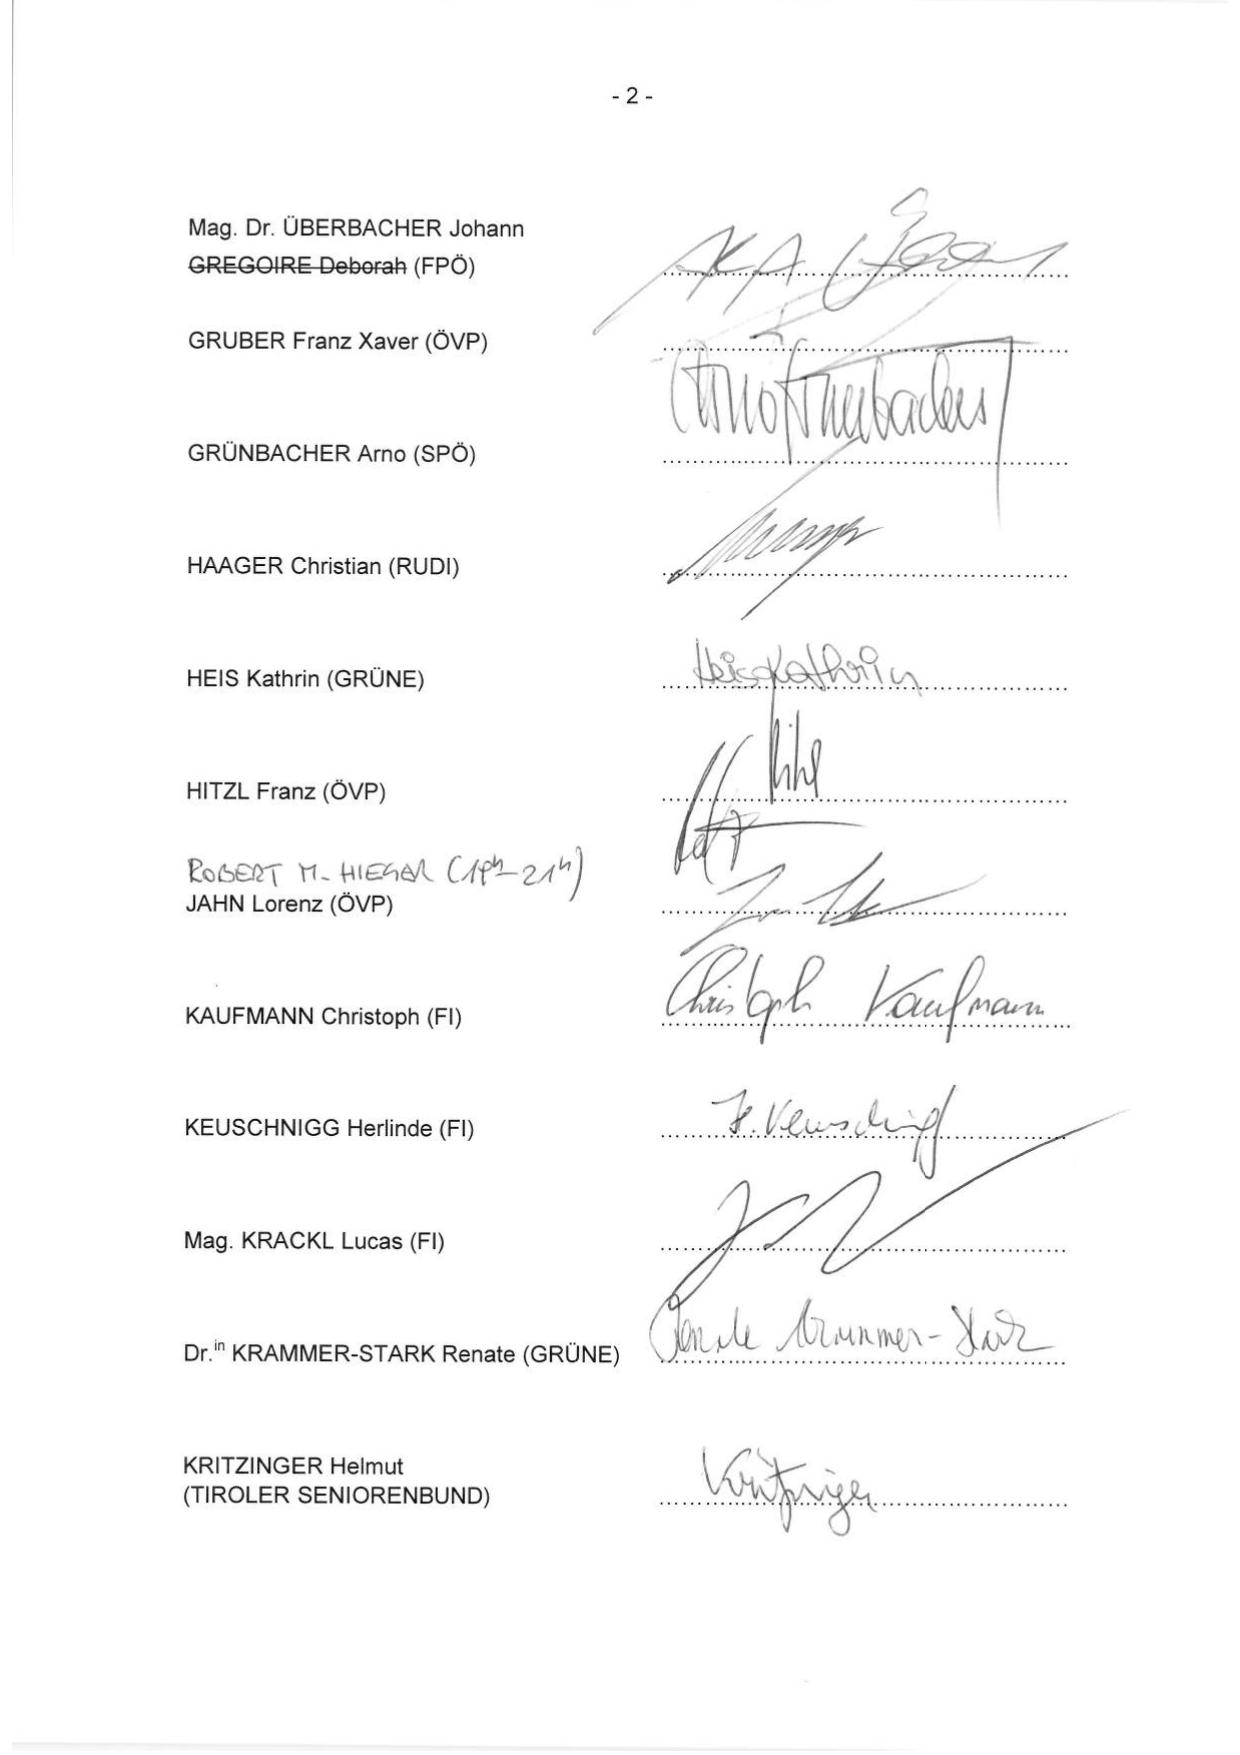 - 2 -
Mag. Dr. ÜBERBACHER Johann
GREGOIRE Deborah (FPÖ)
GRUBER Franz Xaver (ÖVP)
GRÜNBACHER Arno (SPÖ)
HAAGER Christian (RUDI)
HEIS Kathrin (GRÜNE)
Heis Kathrin
HITZL Franz (ÖVP)
ROBERT M. HIEGER (19h-21h)
JAHN Lorenz (ÖVP)
KAUFMANN Christoph (FI)
Christoph Kaufmann
KEUSCHNIGG Herlinde (FI)
H. Keuschnigg
Mag. KRACKL Lucas (FI)
Dr.in KRAMMER-STARK Renate (GRÜNE)
Renate Krammer-Stark
KRITZINGER Helmut
(TIROLER SENIORENBUND)
Kritzinger